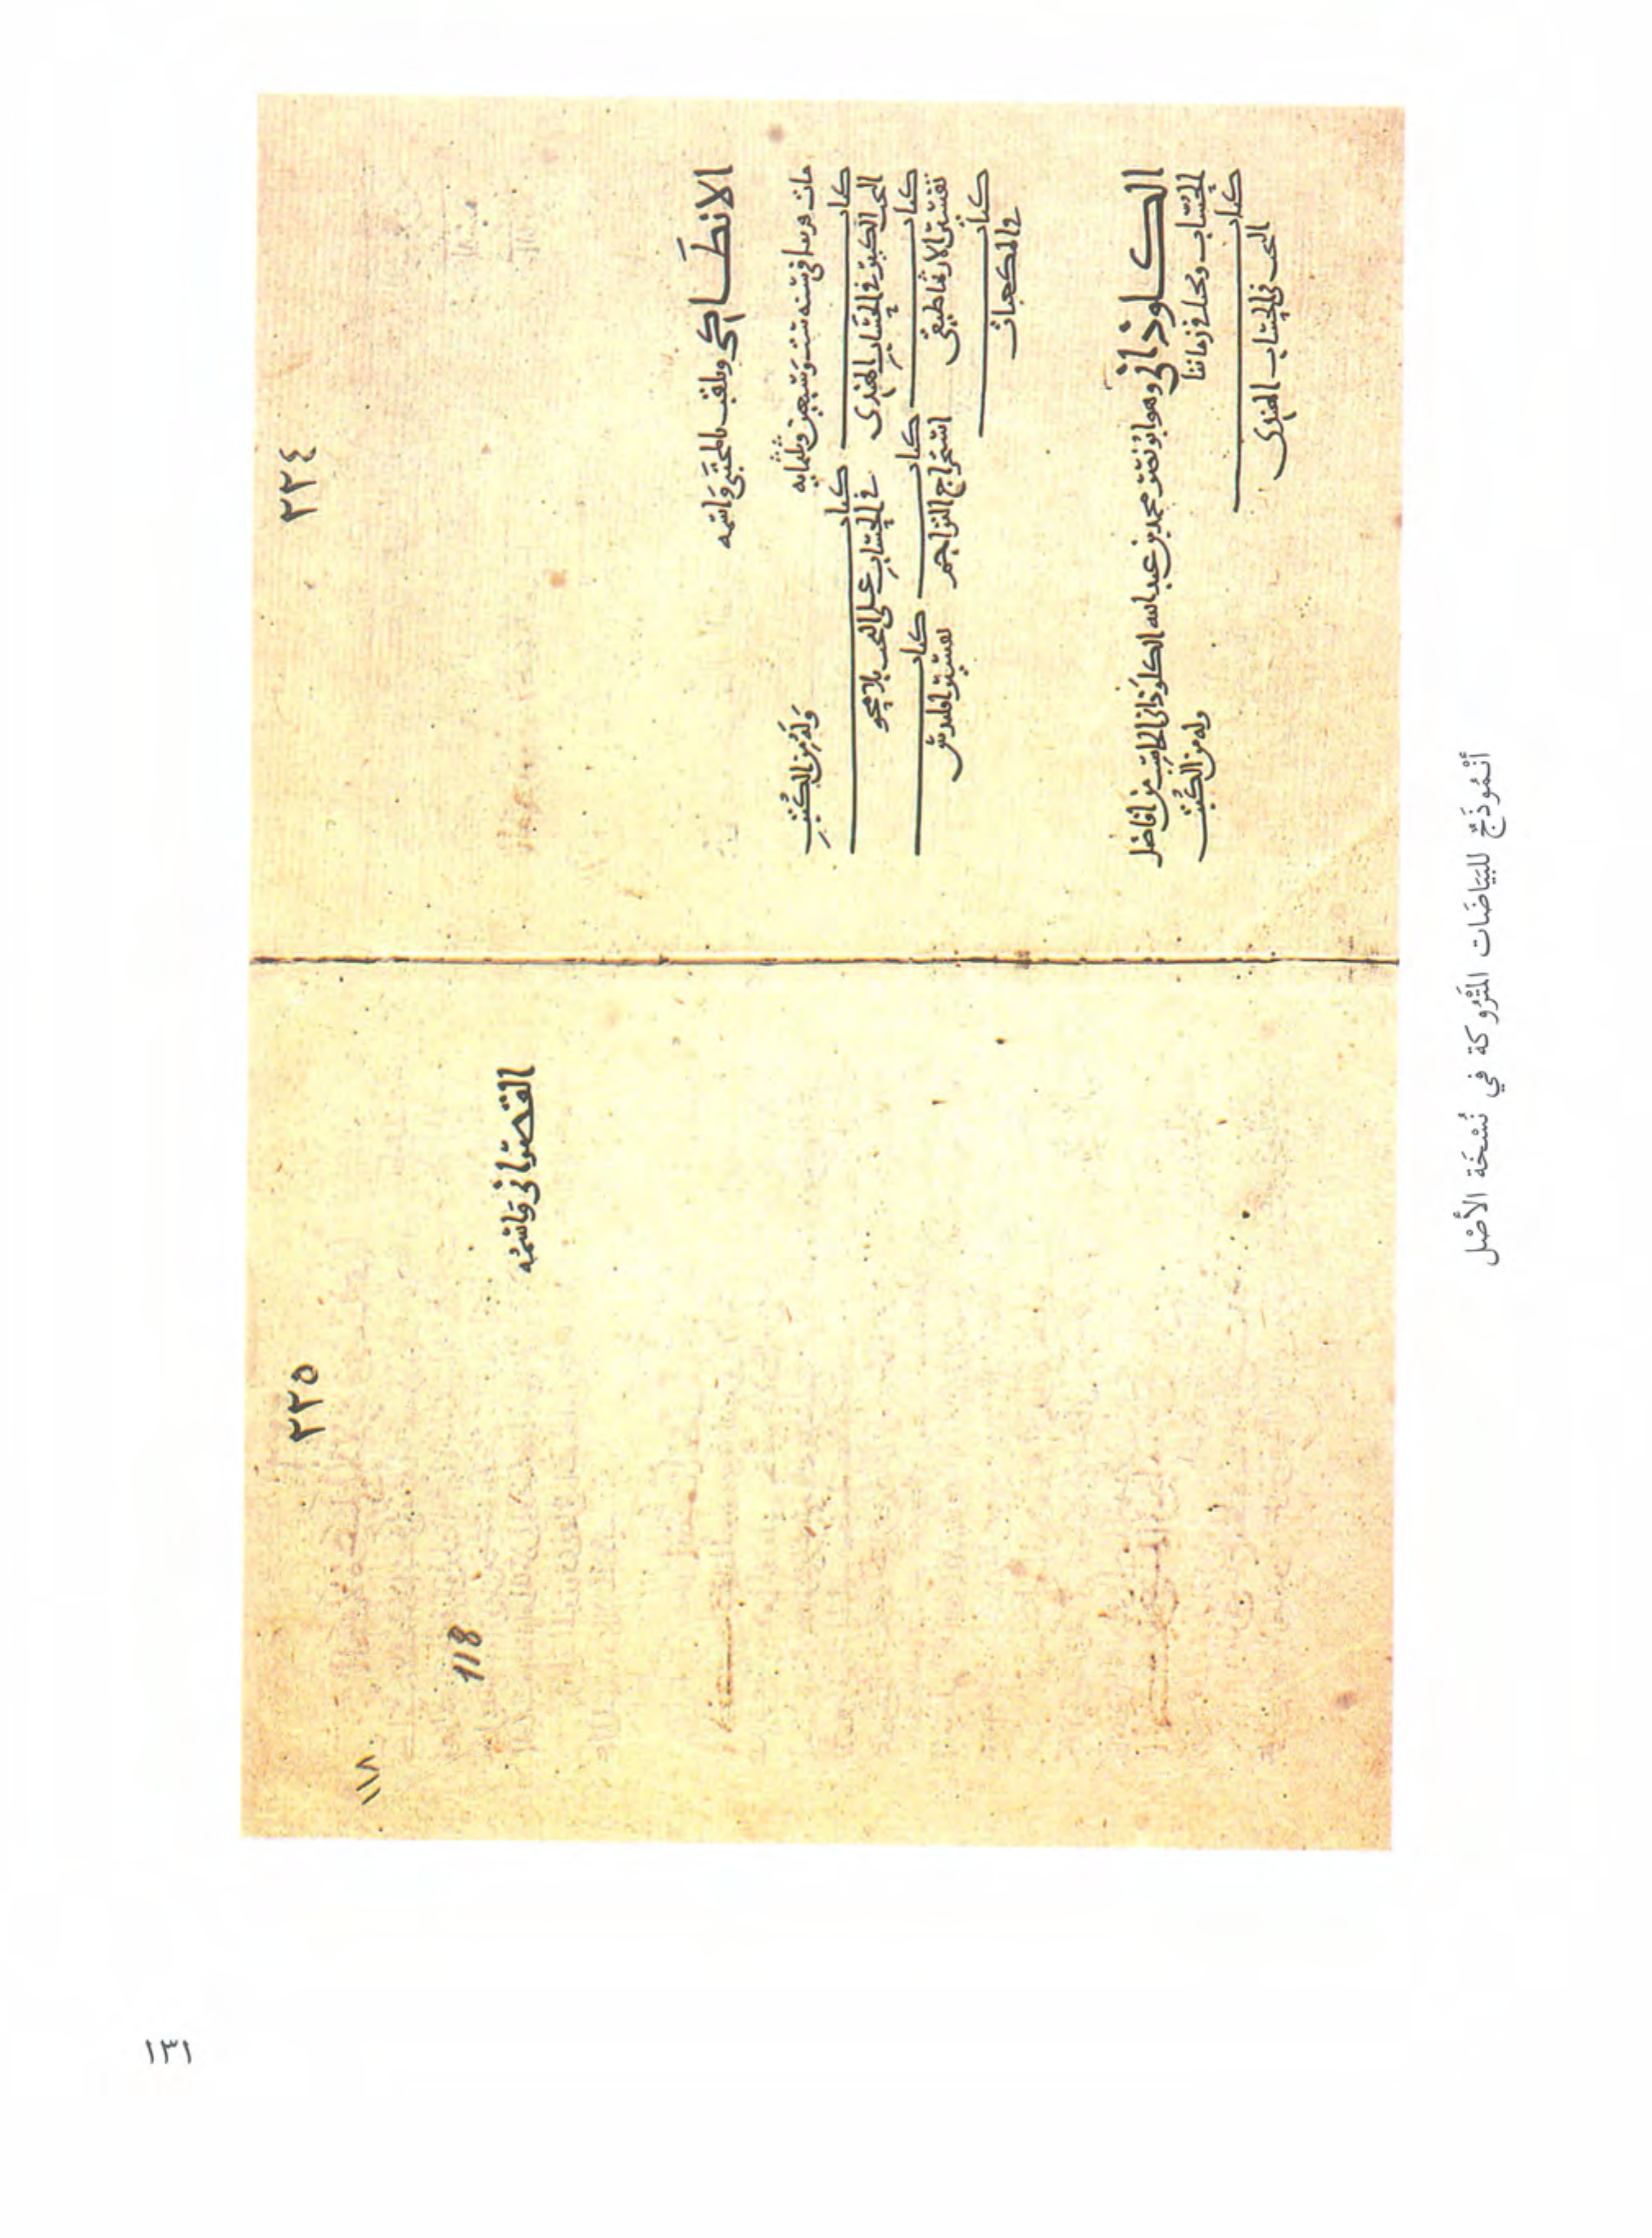 ٢٢٤
الانطاكي ويلقب بالمجتبى واسمه
مات قريبا في سنه ست وسبعين وثلثمايه وله من الكتب
كتاب التخت الكبير في الحساب الهندى كتاب في الحساب على التخت بلا محو
كتاب تفسير الارثماطيقى كتاب استخراج التراجم كتاب تفسير اقليدس
كتاب في المكعبات
الكلوذانى وهو ابو نصر محمد بن عبد الله الكلوذانى الحاسب من افاضل
الحساب ويحيا في زماننا وله من الكتب
كتاب التخت في الحساب الهندى
٢٢٥
١١٨
118
القصرانى واسمه
أنْمُوذَجٌ للبَيَاضَات المَتْرُوكَة في نُسْخَة الأصْل
١٣١